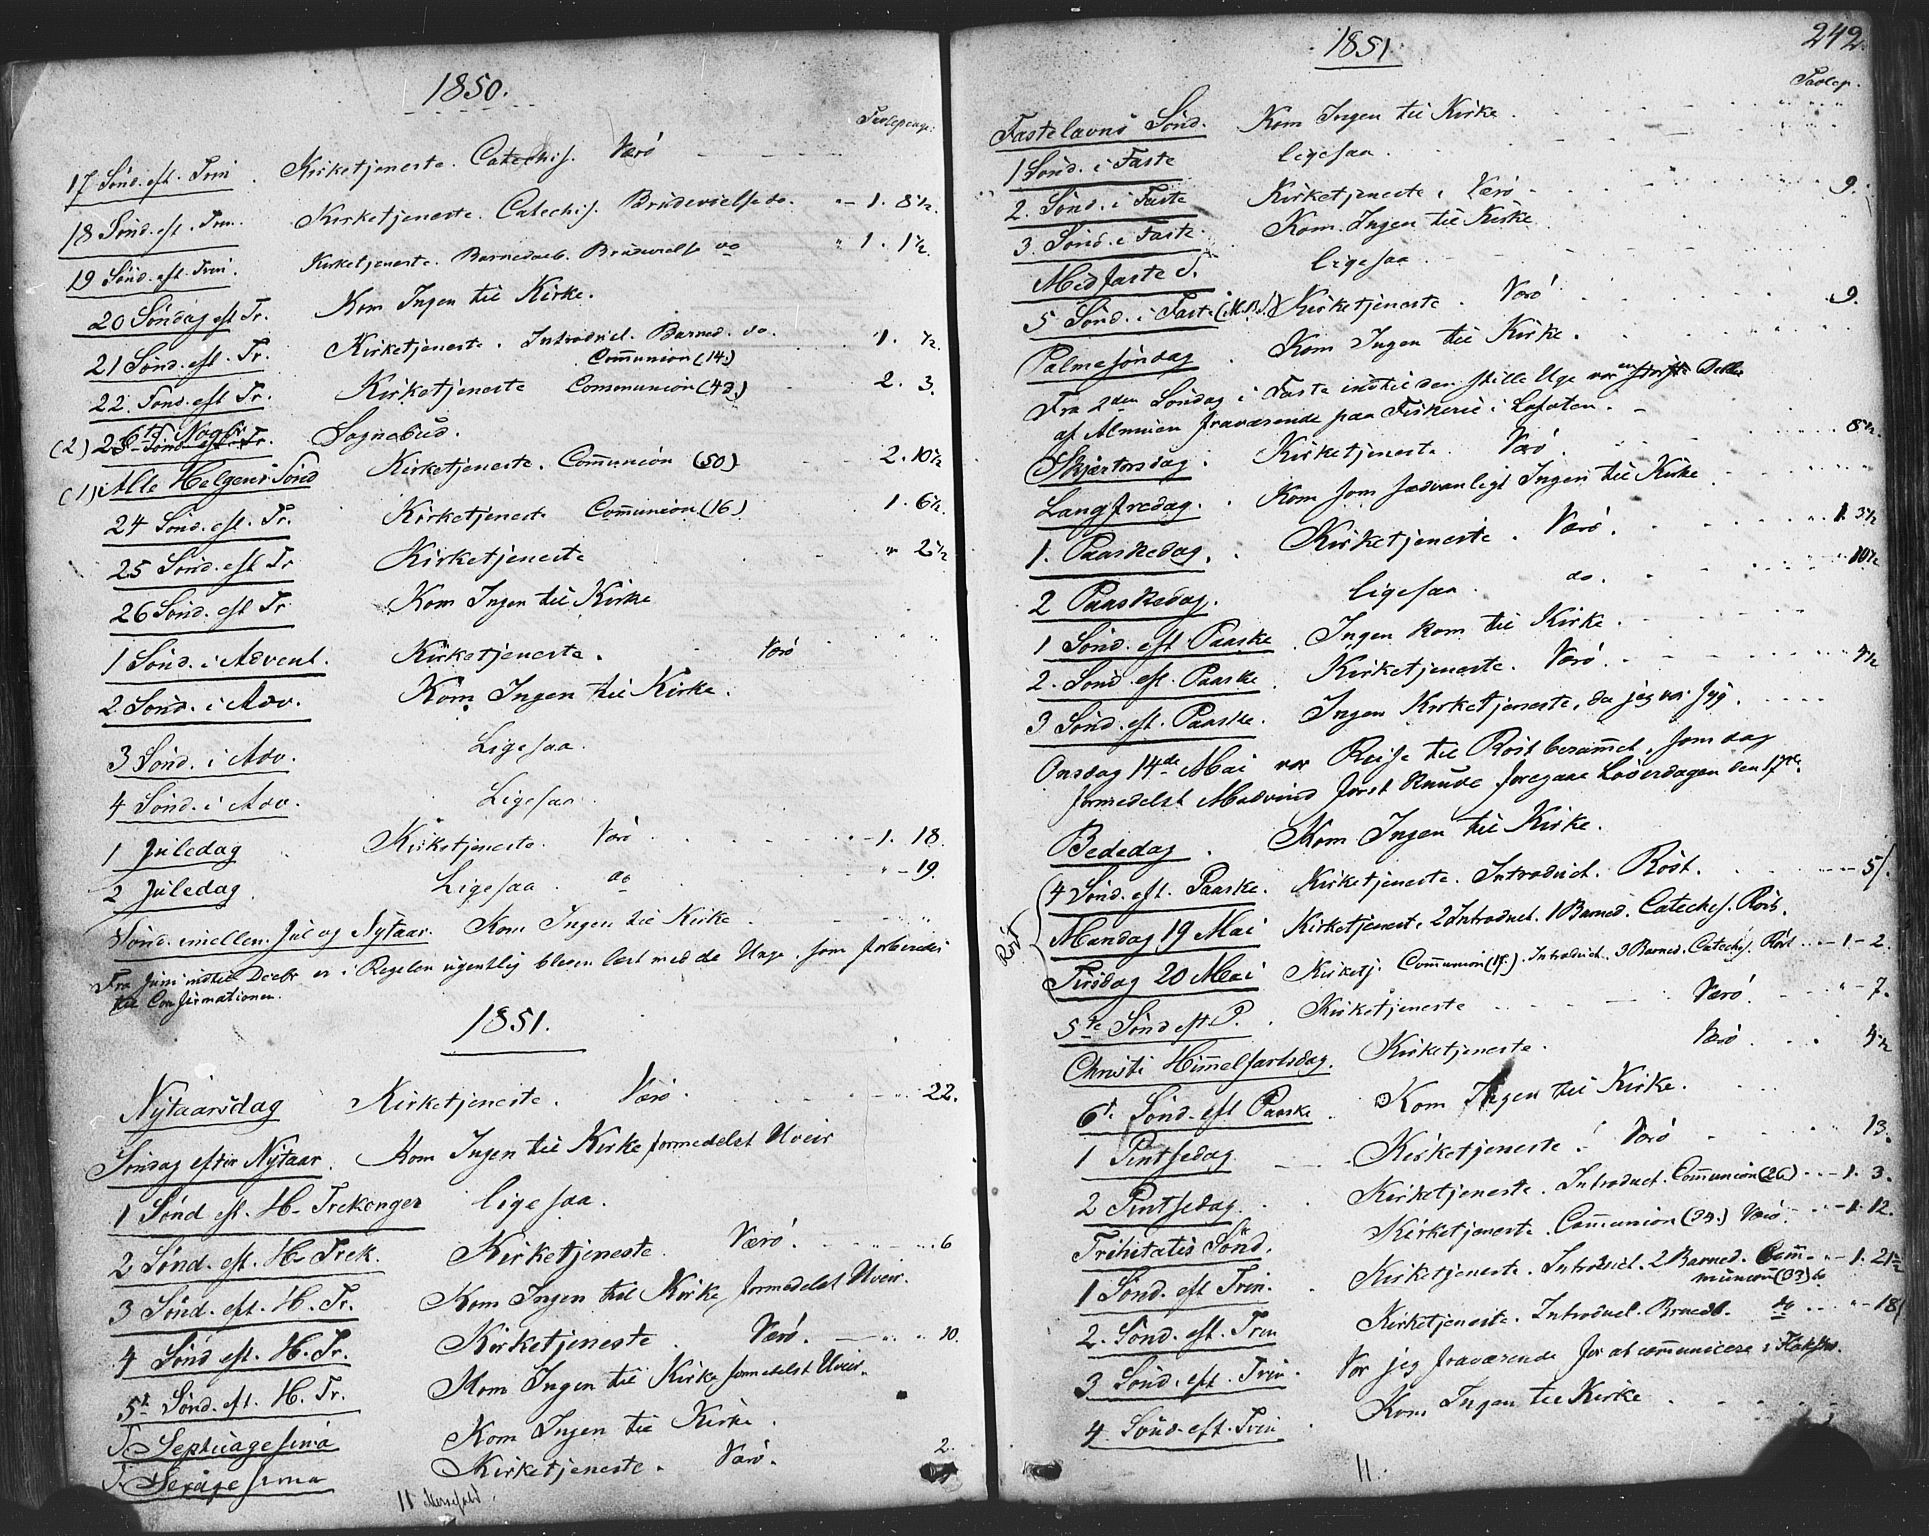 1850.
Tavlepenge.
17 Sönd. eft. Trin. Kirketjeneste. Catechis. Værö
18 Sönd. eft. Trin. Kirketjeneste. Catechis. Brudevielse do. " - 1. 8½.
19 Sönd. eft. Trin. Kirketjeneste. Barnedaab. Brudevielse do " 1. 1½.
20 Söndag eft Tr. Kom Ingen til Kirke.
21 Sönd. eft. Tr. Kirketjeneste. Introduct. Barned. do. "1. ½.
Communion (14.)
22. Sönd. eft Tr. Kirketjeneste Communion (42.) 2. 3.
(2) 23 Sönd. eft. Tr. Sognebud.
(1) Alle Helgens Sönd Kirketjeneste. Communion (50) 2. 10½
24 Sönd. eft. Tr. Kirketjeneste Communion (16) 1. 6½.
25 Sönd. eft Tr Kirketjeneste " 2½
26 Sönd. eft Tr Kom Ingen til Kirke
1 Sönd. i Advent. Kirketjeneste. Værö
2 Sönd. i Adv. Kom Ingen til Kirke.
3 Sönd. i Adv. Ligesaa.
4 Sönd. i Adv. Ligesaa.
1 Juledag Kirketjeneste. Værö -1. 18.
2 Juledag Ligesaa. do " - 19.
Sönd. imellem Jul og Nytaar. Kom Ingen til Kirke.
Fra Juni indtil Decbr er i Regelen ugentlig bleven læst med de Unge, som forberedes
til Confirmationen.
1851.
Nytaarsdag Kirketjeneste. Værö. 22.
Söndag efter Nytaar. Kom Ingen til Kirke formedelst Uveir
1 Sönd eft. H. Trekonger ligesaa.
2 Sönd. eft. H. Trek. Kirketjeneste. Værö. 6
3 Sönd. eft. H. Tr. Kom Ingen til Kirke formedelst Uveir.
4 Sönd eft. H. Tr. Kirketjeneste. Værö. 10.
5t Sönd. eft. H. Tr. Kom Ingen til Kirke formedelst Uveir.
S. Septuagesima Kom Ingen til Kirke.
S. Sexagesima Kirketjeneste. Værö. 2.
11
242.
1851.
Tavlep.
Fastelavns Sönd. Kom Ingen til Kirke
1 Sönd. i Faste ligesaa.
2. Sönd. i Faste Kirketjeneste. Værö. 9.
3. Sönd. i Faste. Kom Ingen til Kirke
Midfaste S. ligesaa
5 Sönd. i Faste (M.B.) Kirketjeneste. Værö 9.
Palmesöndag. Kom Ingen til Kirke.
Fra 2den Söndag i Faste indtil den stille Uge var en störste Delen
af Almuen fraværende paa Fiskerie i Lofoten.
Skjærtorsdag. Kirketjeneste. Værö. 8½.
Langfredag. Kom som sædvanligt Ingen til Kirke
1. Paaskedag. Kirketjeneste. Værö. 1. 3½
2 Paaskedag. ligesaa. do. 10½
1 Sönd. eft Paaske. Ingen kom til Kirke.
2. Sönd eft. Paaske. Kirketjeneste. Værö. 4½
3 Sönd. eft. Paaske. Ingen Kirketjeneste, da jeg var syg.
Onsdag 14de Mai var Reise til Röst berammet, som dog
formedelst Modvind först kunde foregaae Löverdagen den 17de.
Bededag. Kom Ingen til Kirke.
Röst
4 Sönd. eft. Paaske. Kirketjeneste. Introduct. Röst. 5/.
Mandag 19 Mai Kirketjenest. 2 Introduct. 1 Barned. Cateches. Röst.
Tirsdag 20 Mai Kirketj. Communion (19.). Introduct. 3 Barned. Catechis. Röst - 1 - 2.
5te Sönd eft P. Kirketjeneste Værö. " - 7.
Christi Himmelfartsdag. Kirketjeneste. Værö. 4½
6t. Sönd. eft Paaske. Kom Ingen til Kirke.
1 Pintsedag. Kirketjeneste. Værö 13.
2 Pintsedag. Kirketjeneste. Introduct. Communion (26) - 1. 3.
Trinitatis Sönd. Kirketjeneste. Communion (34.) Værö. -1. 12.
1 Sönd. eft Trin. Kirketjeneste. Introduct. 2 Barned. Com- - 1. 21½
munion (33) do
2. Sönd. eft. Trin Kirketjeneste. Introduct. Brudev. do " - 18/
3 Sönd. eft. Trin. Var jeg fraværende for at communicere i Flakstad.
4 Sönd. eft. Trin. Kom Ingen til Kirke
11.